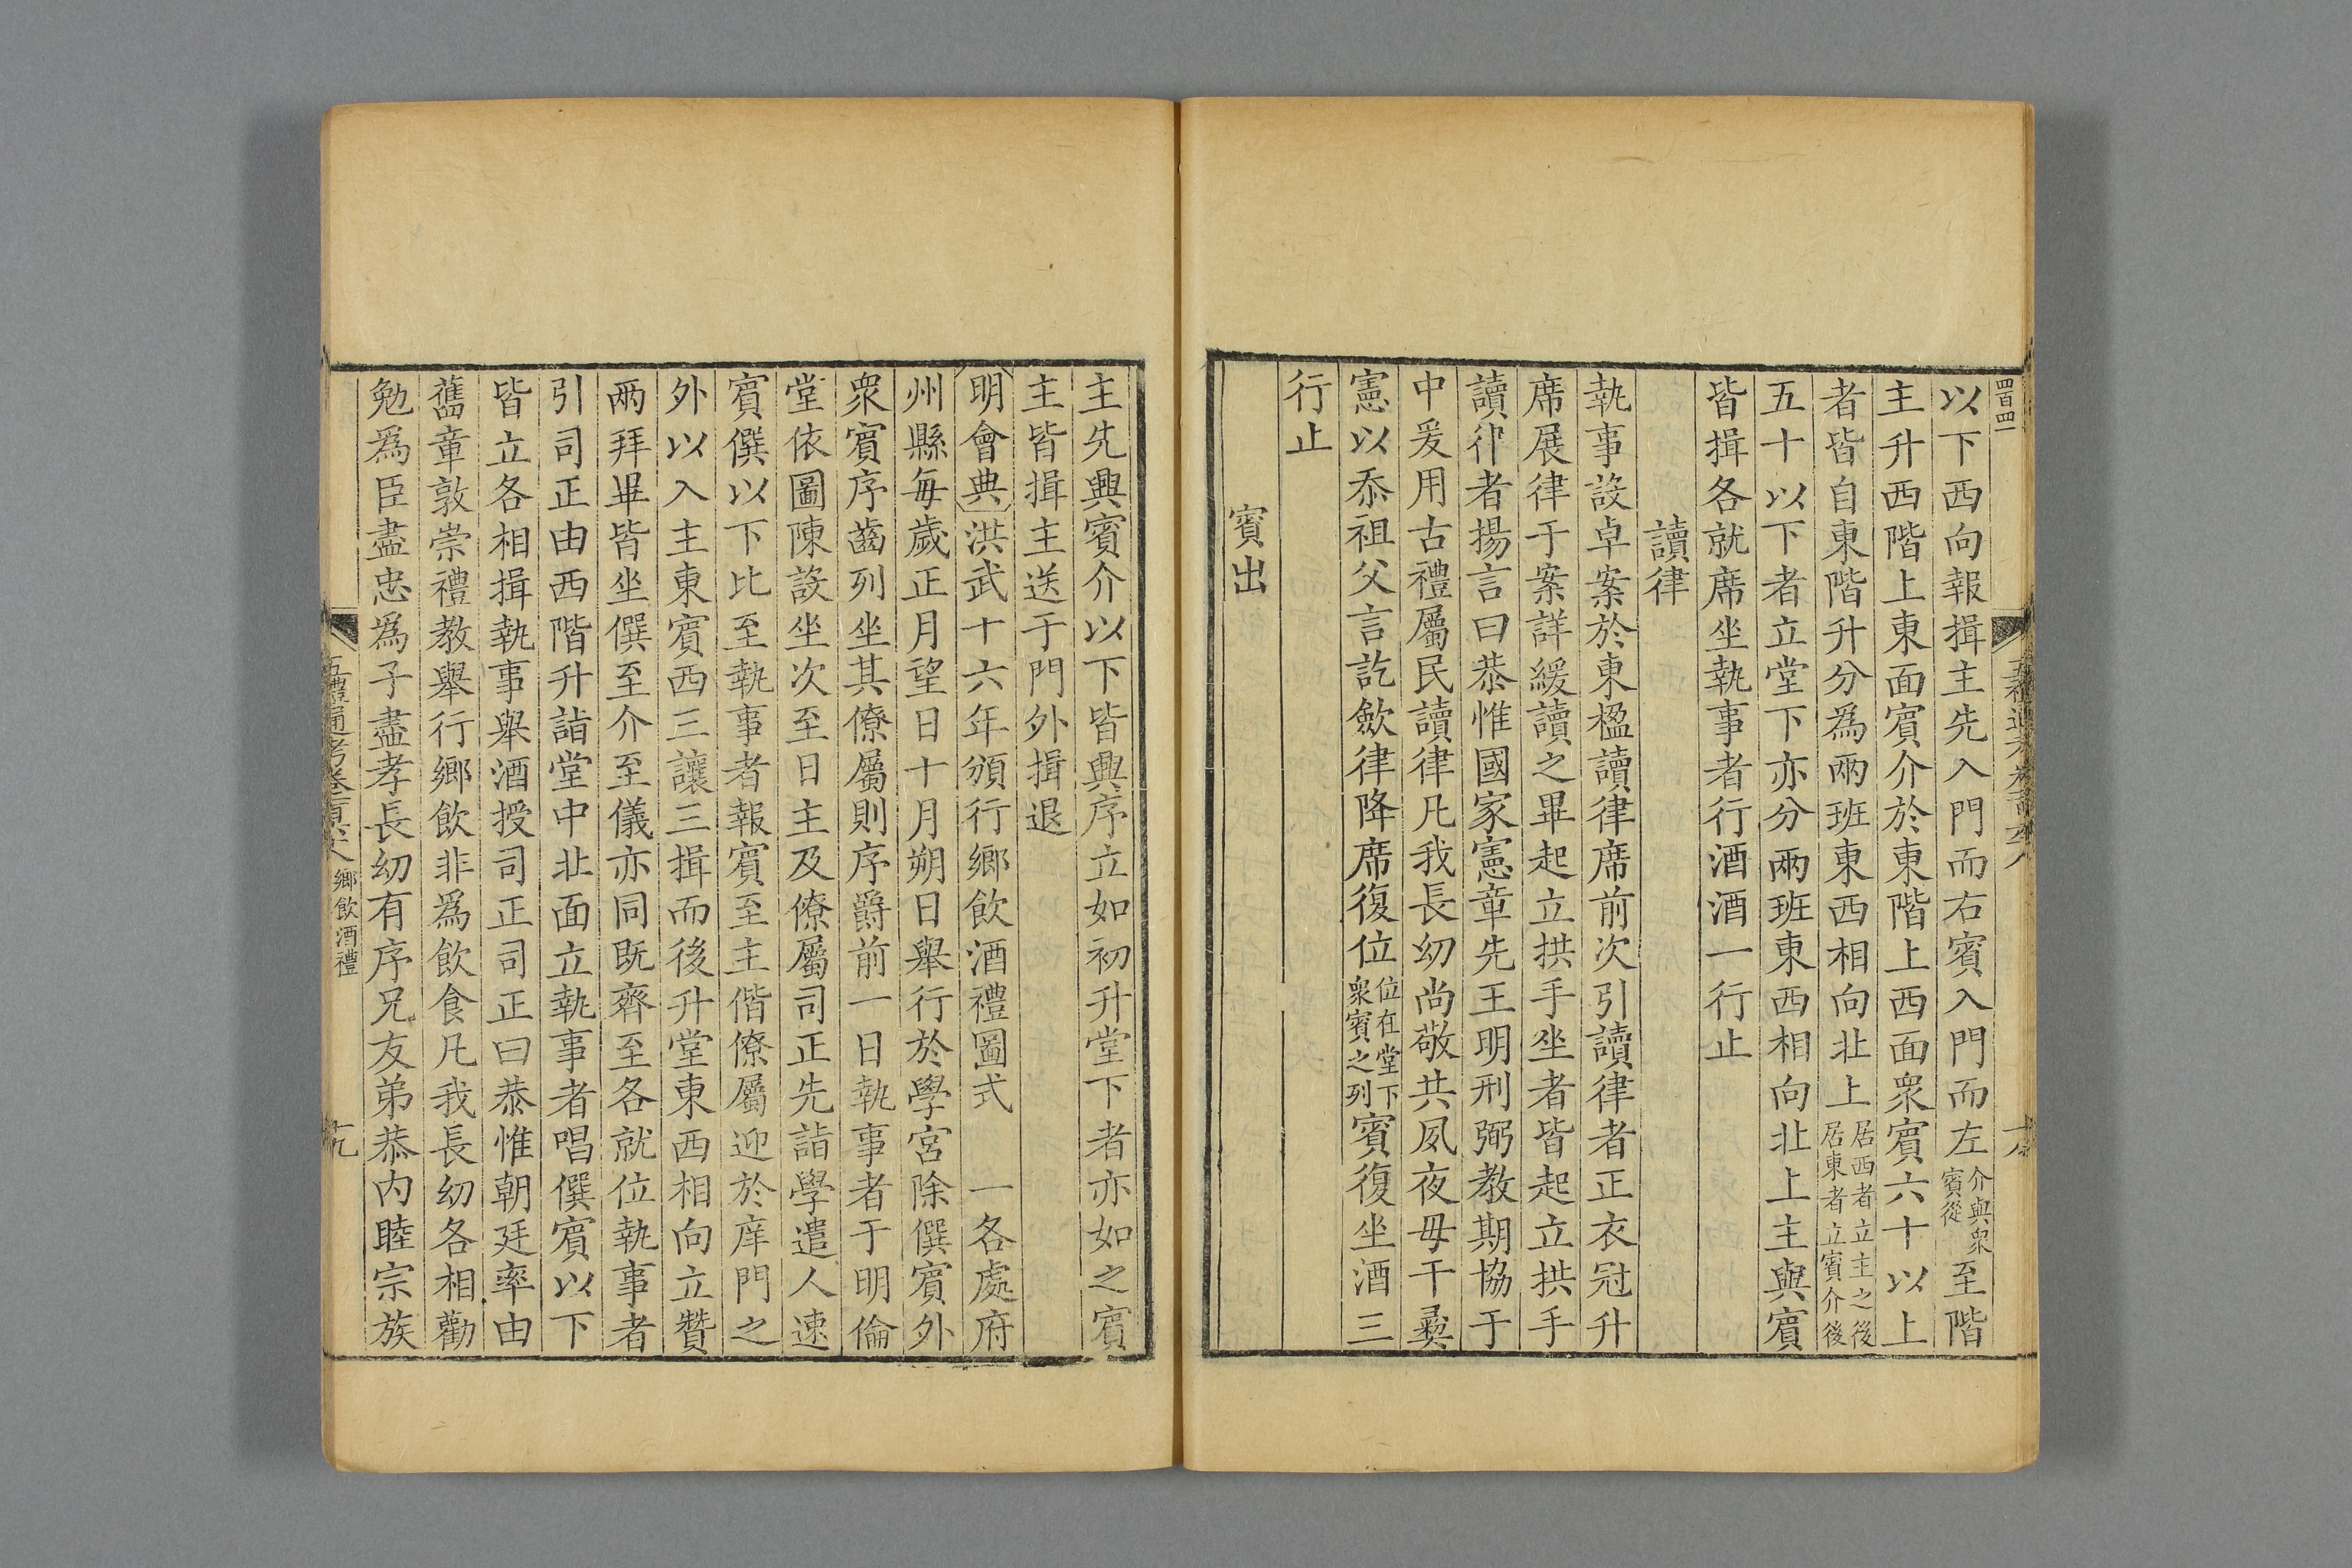 四百四
以下西向報揖主先入門而右賓入門而左介與衆賓從至階
主升西階上東面賓介於東階上西面衆賓六十以上
者皆自東階升分為兩班東西相向北上居西者立主之後居東者立賓介後
五十以下者立堂下亦分兩班東西相向北上主與賓
皆揖各就席坐執事者行酒酒一行止
讀律
執事設卓案於東楹讀律席前次引讀律者正衣冠升
席展律于案詳緩讀之畢起立拱手坐者皆起立拱手
讀律者揚言曰恭惟國家憲章先王明刑弼教期協于
中爰用古禮屬民讀律凡我長幼尚敬共夙夜毋干彝
憲以忝祖父言訖斂律降席復位位在堂下衆賓之列賓復坐酒三
行止
賓出
主先興賓介以下皆興序立如初升堂下者亦如之賓
主皆揖主送于門外揖退
明會典洪武十六年頒行鄉飲酒禮圖式 一各處府
州縣每歲正月望日十月朔日舉行於學宮除僎賓外
衆賓序齒列坐其僚屬則序爵前一日執事者于明倫
堂依圖陳設坐次至日主及僚屬司正先詣學遣人速
賓僎以下比至執事者報賓至主偕僚屬迎於庠門之
外以入主東賓西三讓三揖而後升堂東西相向立贊
兩拜畢皆坐僎至介至儀亦同既齊至各就位執事者
引司正由西階升詣堂中北面立執事者唱僎賓以下
皆立各相揖執事舉酒授司正司正曰恭惟朝廷率由
舊章敦崇禮教舉行鄉飲非爲飲食凡我長幼各相勸
勉爲臣盡忠爲子盡孝長幼有序兄友弟恭内睦宗族
五禮通考卷一百六十八 鄉飲酒禮 十九